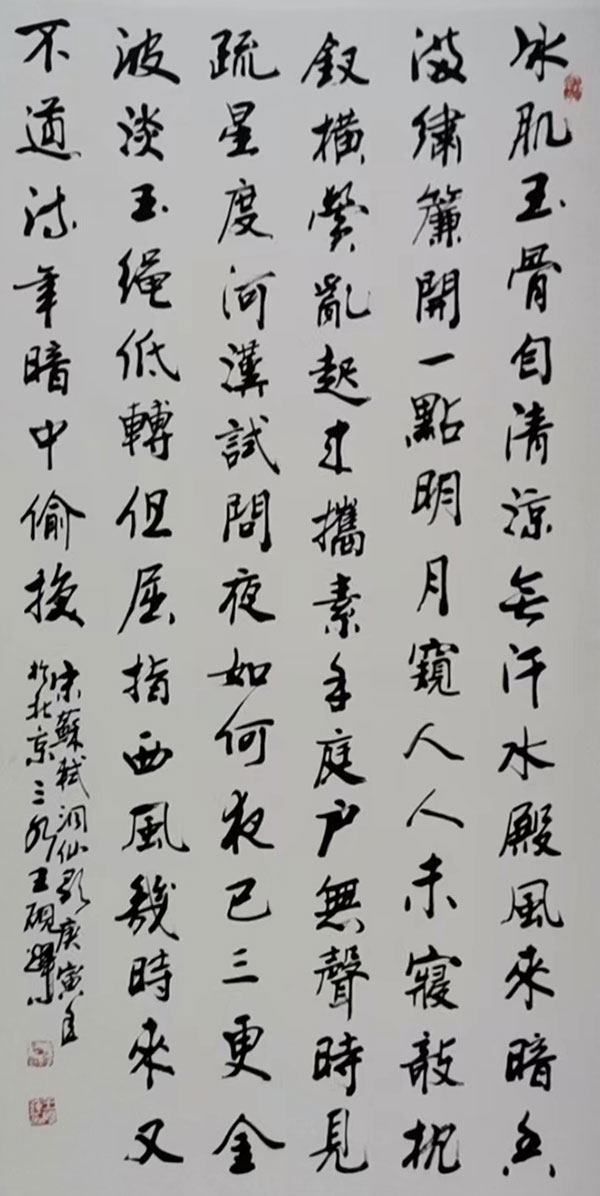 冰肌玉骨自清涼無汗水殿風來暗香
滿繡簾開一點明月窺人人未寢敧枕
釵橫鬢亂起來攜素手庭户無聲時見
疏星度河漢試問夜如何夜已三更金
波淡玉繩低轉但屈指西風幾時來又
不道流年暗中偷換
宋蘇軾洞仙歌庚寅年
於北京三水王硯輝